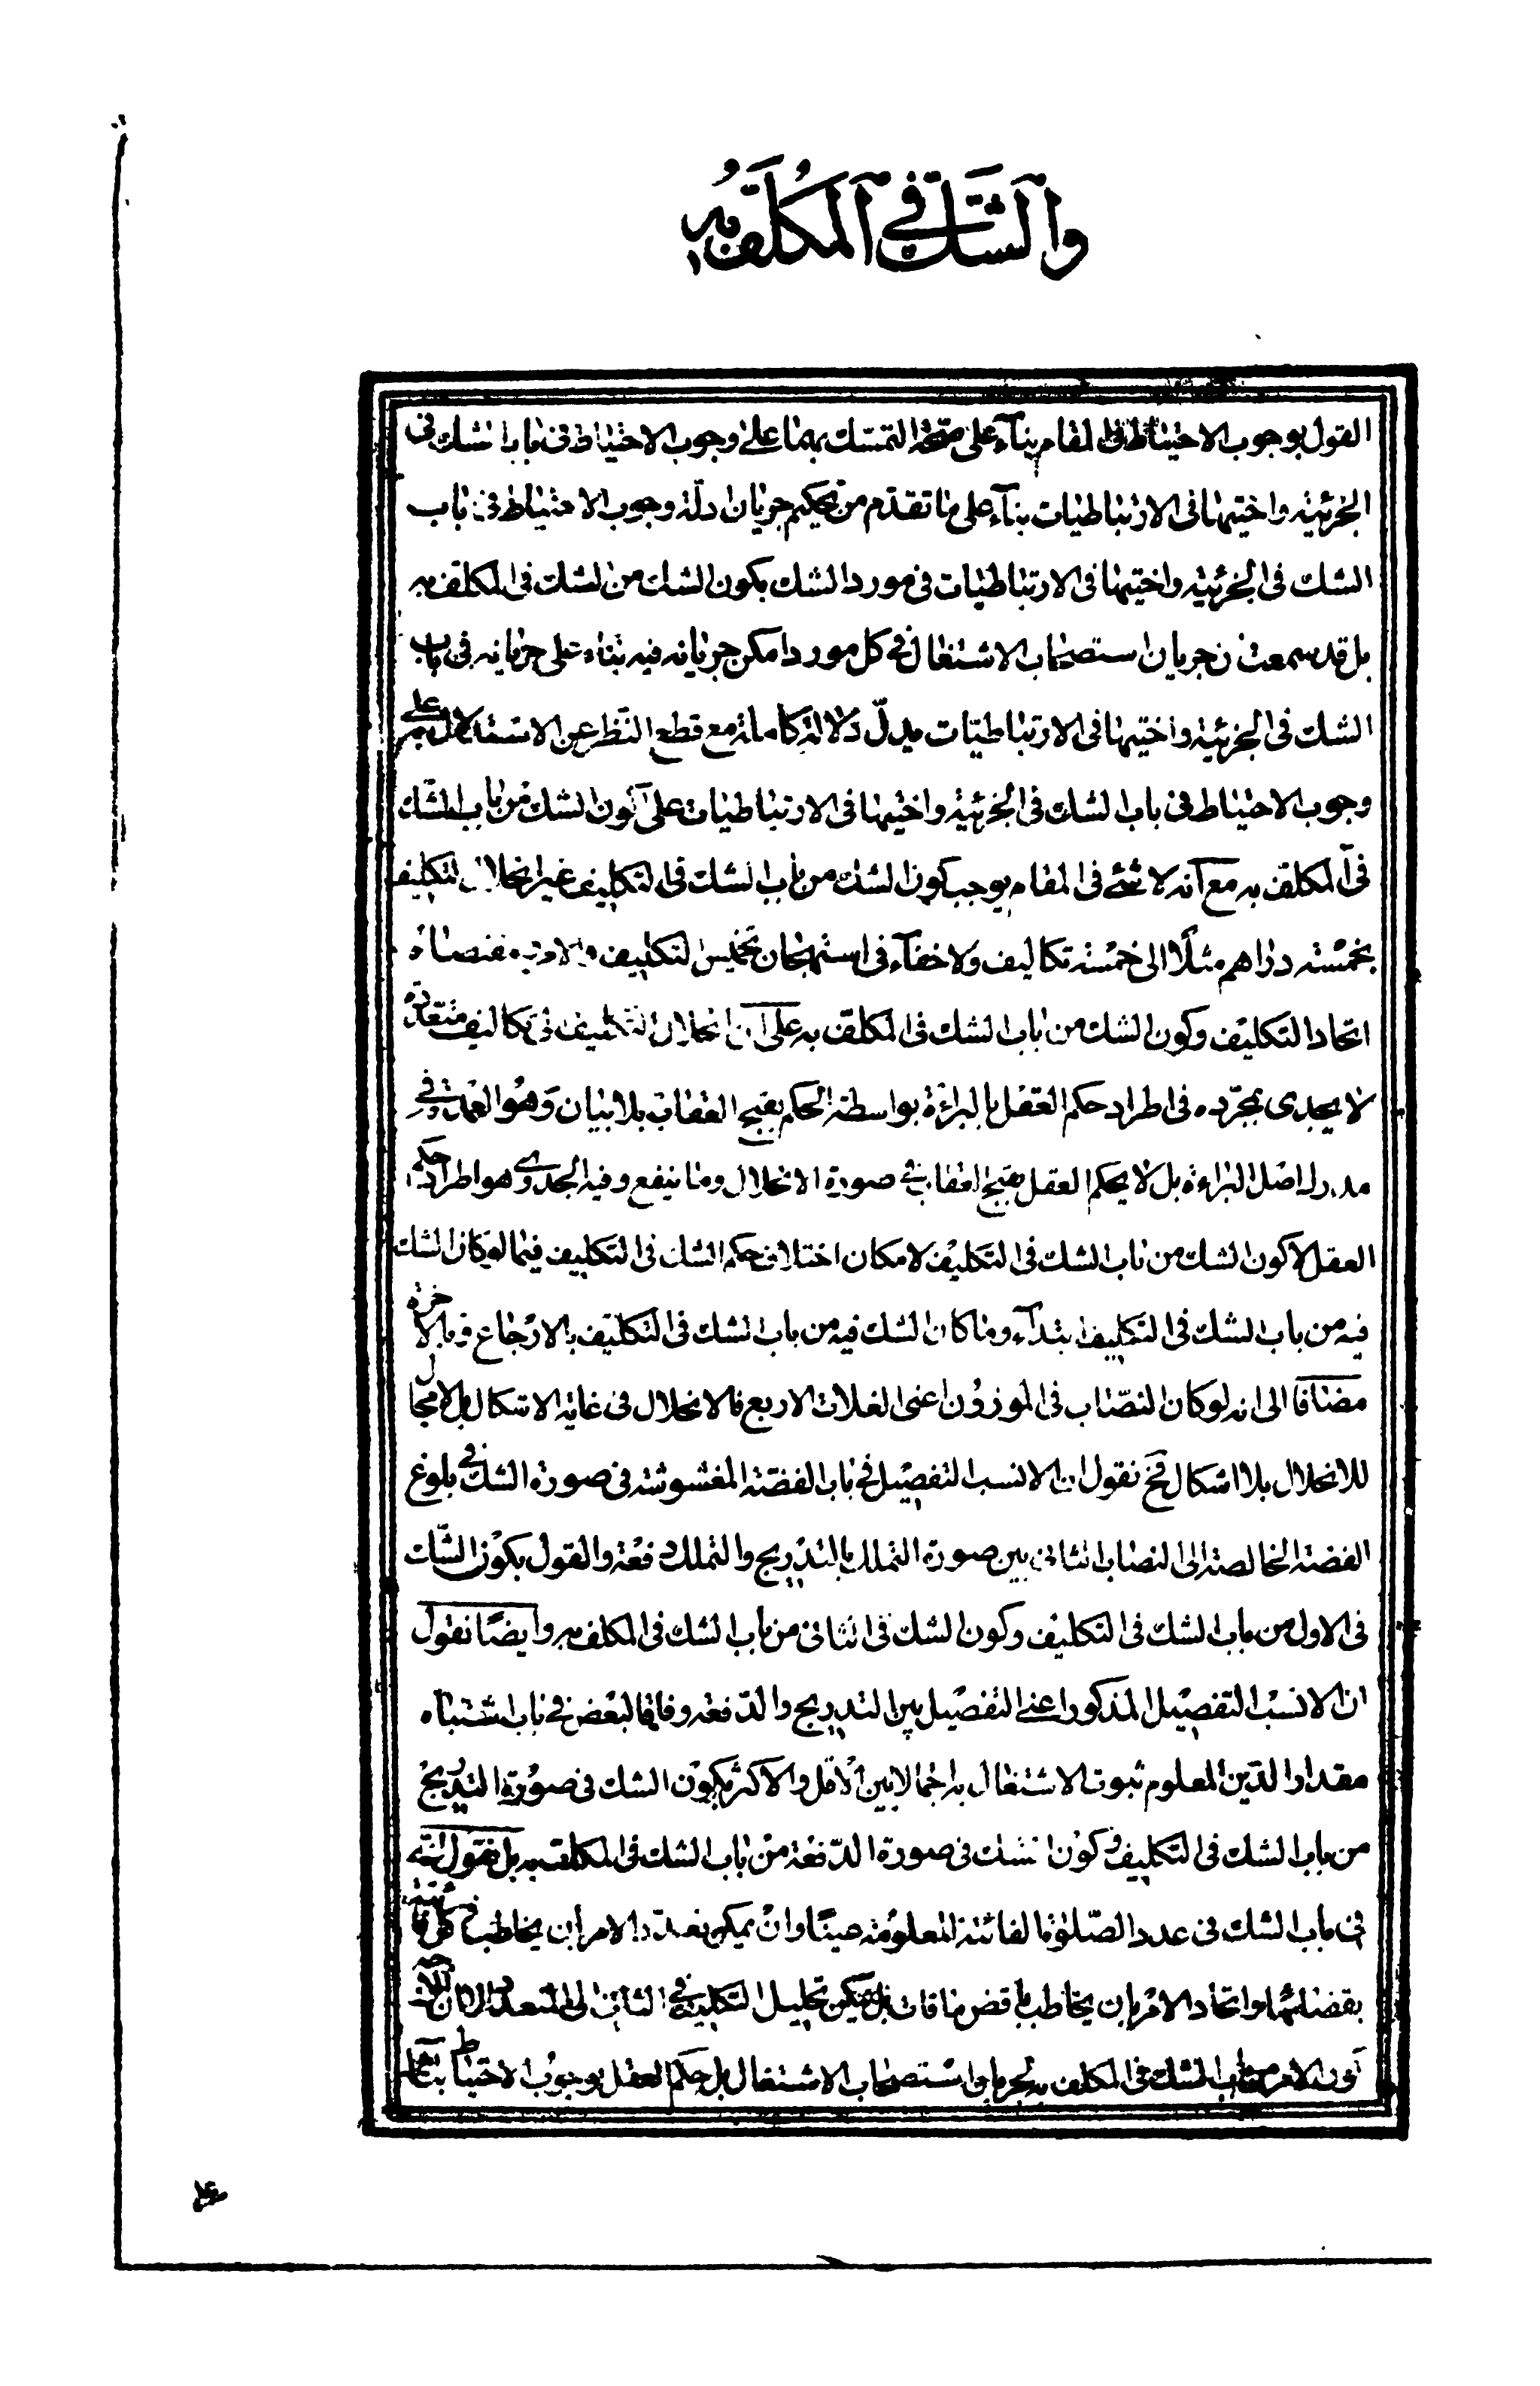 والشك في المكلف به
القول بوجوب الاحتياط فى المقام بناء على صحة التمسك بهما على وجوب الاحتياط فى باب الشك فى
الجزئية واختيها فى الارتباطيات بناء على ما تقدم من تحكيم جريان ادلة وجوب الاحتياط فى باب
الشك فى الجزئية واختيها فى الارتباطيات فى مورد الشك بكون الشك من الشك فى المكلف به
بل قد سمعت ن جريان استصحاب الاشتغال فى كل مورد امكن جريانه فيه بناء على جريانه فى باب
الشك فى الجزئية واختيها فى الارتباطيات يدل دلالة كاملة مع قطع النظر عن الاستدلال به على
وجوب الاحتياط فى باب الشك فى الجزئية واختيها فى الارتباطيات على كون الشك من باب الشك
فى المكلف به مع انه لا شئ فى المقام يوجب كون الشك من باب الشك فى التكليف غير انحلال التكليف
بخمسة دراهم مثلا الى خمسة تكاليف ولا خفاء فى استهجان تخميس التكليف
اتحاد التكليف وكون الشك من باب الشك فى المكلف به على ان انحلال التكليف فى تكاليف متعددة
لا يجدى بمجرده فى اطراد حكم العقل بالبراءة بواسطة الحكم بقبح العقاب بلا بيان وهو العمدة فى
مدرك اصل البراءة بل لا يحكم العقل بقبح العقاب فى صورة الانحلال وما ينفع وفيه الجدوى هو اطراد حكم
العقل لا كون الشك من باب الشك فى التكليف لامكان اختلاف حكم الشك فى التكليف فيما لو كان الشك
فيه من باب الشك فى التكليف ابتداء وما كان الشك فيه من باب الشك فى التكليف بالارجاع و بالاخرة
مضافا الى انه لو كان النصاب فى الموزون اعنى الغلات الاربع فالانحلال فى غاية الاشكال بل لا مجال
للانحلال بلا اشكال فح نقول ان الانسب التفصيل فى باب الفضة المغشوشة فى صورة الشك فى بلوغ
الفضة الخالصة الى النصاب الثانى بين صورة التملك بالتدريج والتملك دفعة والقول بكون الشك
فى الاول من باب الشك فى التكليف وكون الشك فى الثانى من باب الشك فى المكلف به وايضا نقول
ان الانسب التفصيل المذكور اعنى التفصيل بين التدريج والدفعة وفاقا لبعض فى باب اشتباه
مقدار الدين المعلوم ثبوت الاشتغال به اجمالا بين الاقل والاكثر بكون الشك فى صورة التدريج
من باب الشك فى التكليف وكون الشك فى صورة الدفعة من باب الشك فى المكلف به بل نقول انه
فى باب الشك فى عدد الصلوة الفائتة المعلومة عينا وان يمكن تعدد الامر بان يخاطب كل فائتة
بقضائها واتحاد الامر بان يخاطب باقض ما فات بل يمكن تحليل التكليف فى الثانى الى المتعدد
كون الامر من باب الشك فى المكلف به لجريان استصحاب الاشتغال بل حكم العقل بوجوب الاحتياط بناء